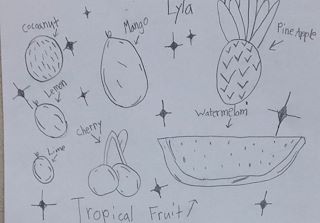 Lyla
Cocoanut
Mango
Pine Apple
Lemon
Watermelom
Cherry
Lime
Tropical Fruit